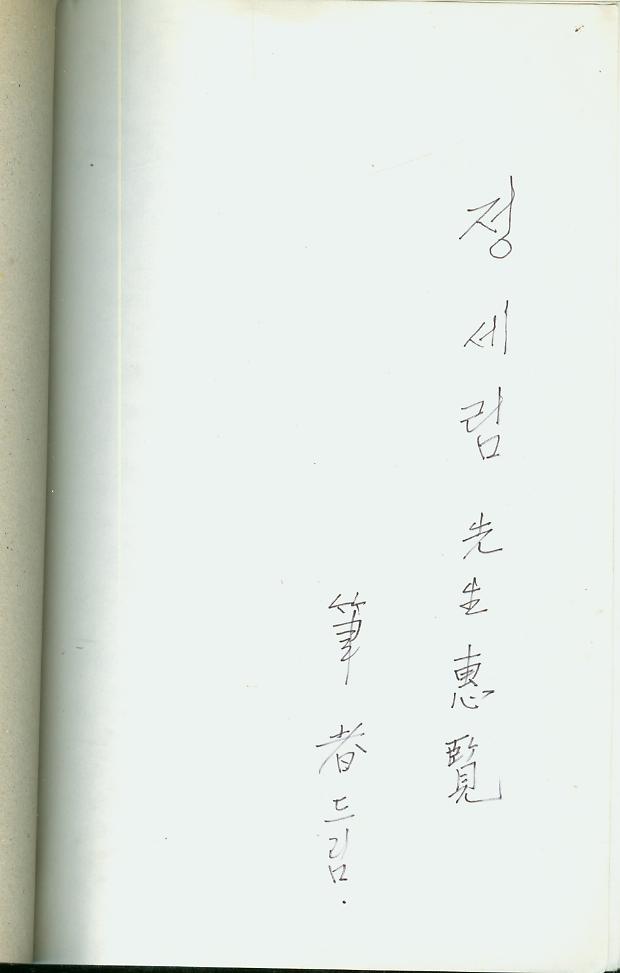 정세림 先生 惠覽
筆者 드림.